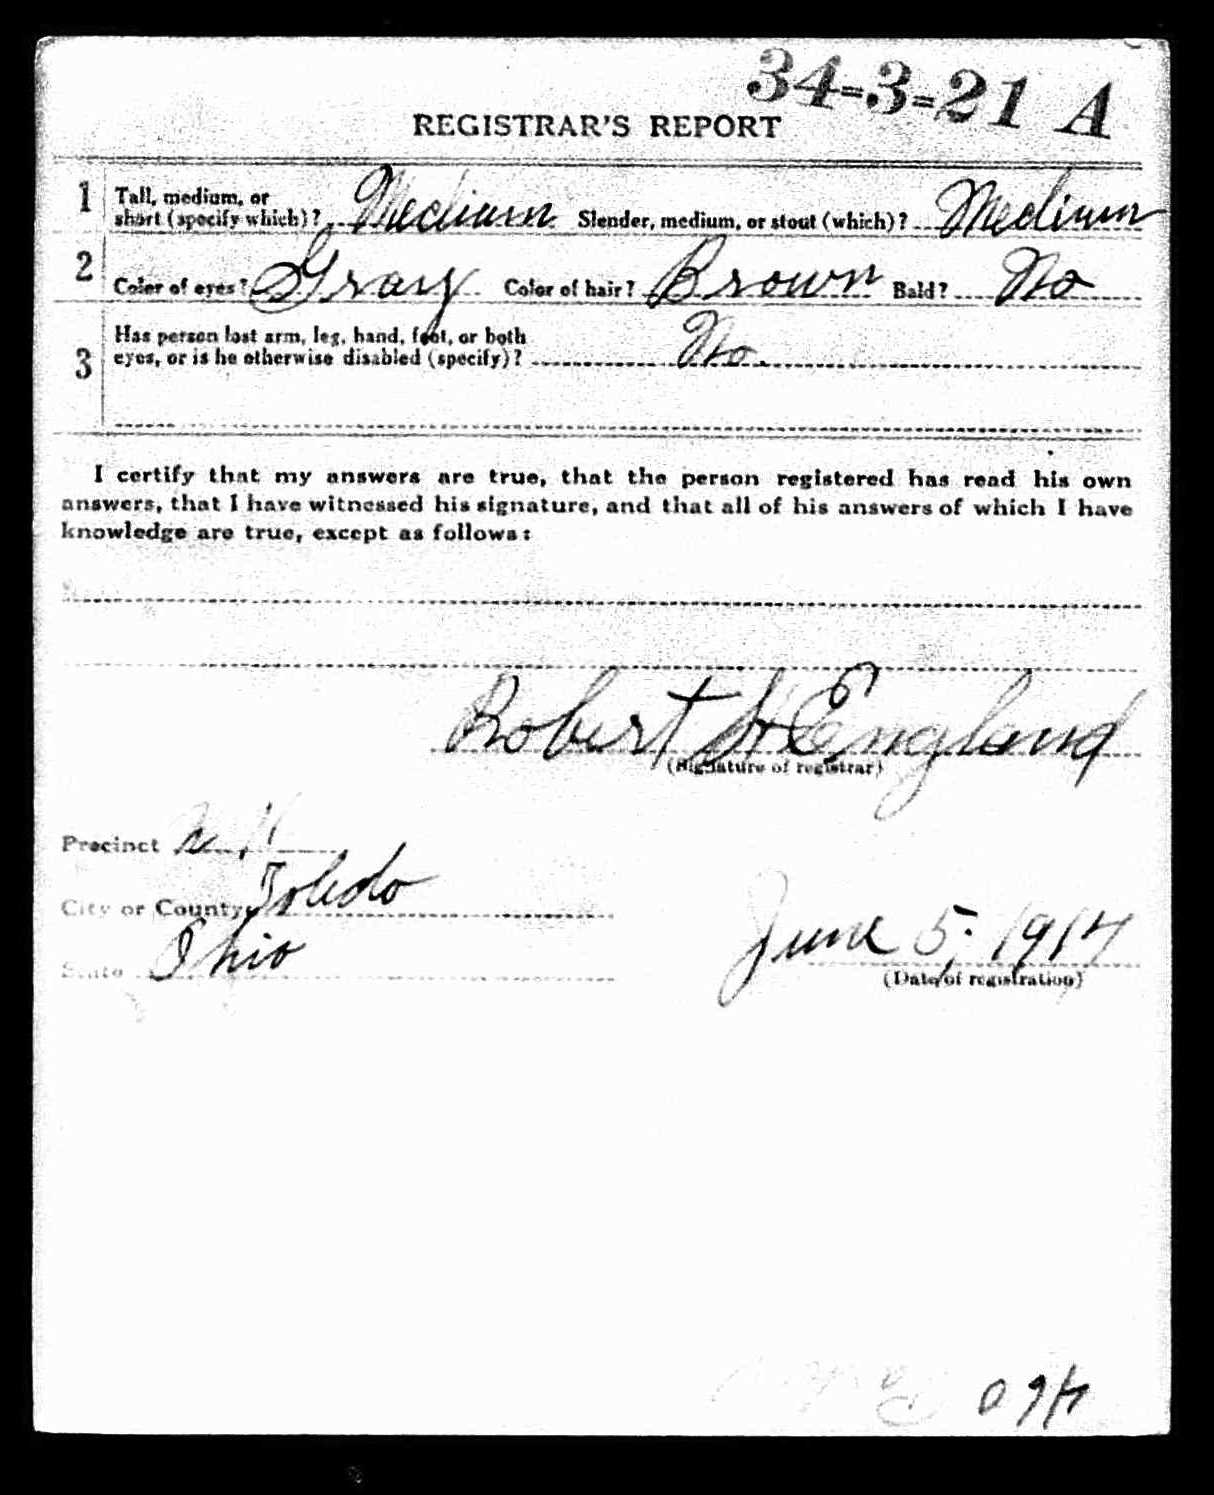 34-3-21 A
REGISTRAR'S REPORT
1 Tall, medium, or short (specify which)? Medium Slender, medium, or stout (which)? Medium
2 Color of eyes? Gray Color of hair? Brown Bald? No
3 Has person lost arm, leg, hand, foot, or both
eyes, or is he otherwise disabled (specify)? No.
I certify that my answers are true, that the person registered has read his own
answers, that I have witnessed his signature, and that all of his answers of which I have
knowledge are true, except as follows:
Robert H England
(Signature of registrar)
Precinct
City or County Toledo
State Ohio
June 5, 1917
(Date of registration)